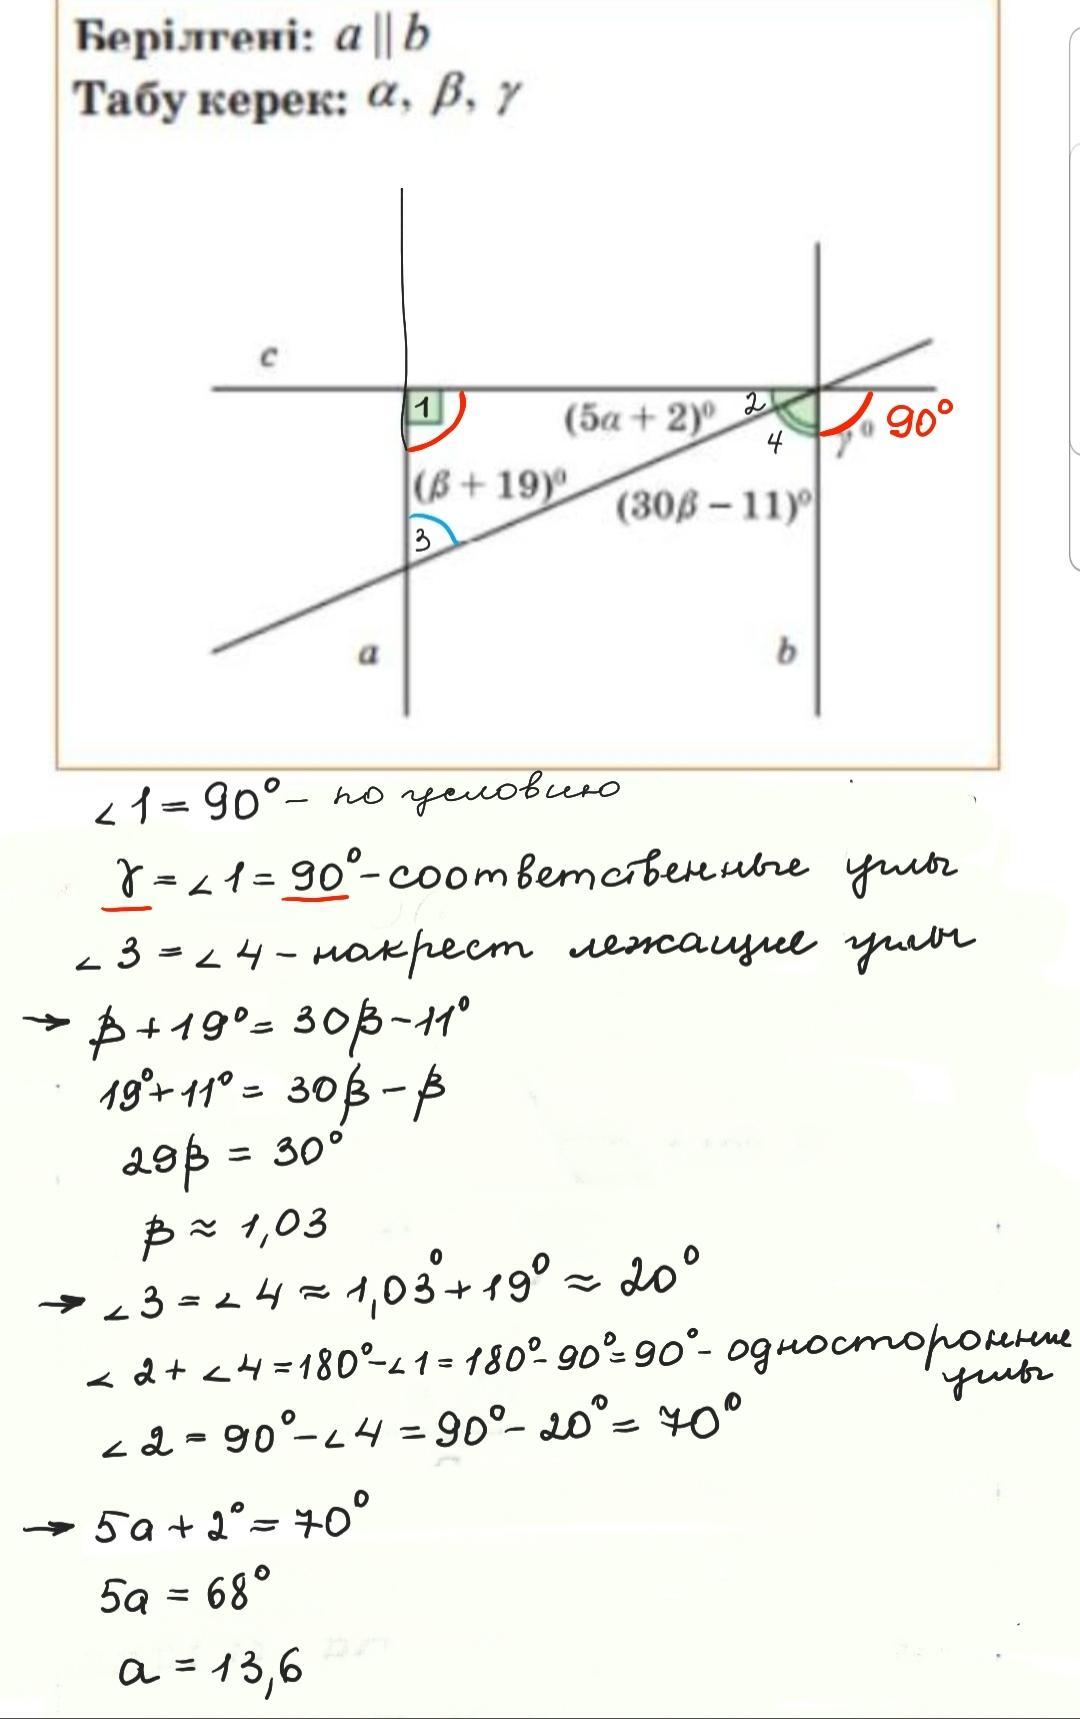 Берілгені: a || b
Табу керек: α, β, γ
c
1
(5α + 2)⁰
2
4
γ⁰
90°
(β + 19)⁰
(30β – 11)⁰
3
a
b
∠1 = 90° – по условию
γ = ∠1 = 90° – соответственные углы
∠3 = ∠4 – накрест лежащие углы
→ β + 19° = 30β – 11°
19° + 11° = 30β – β
29β = 30°
β ≈ 1,03
→ ∠3 = ∠4 ≈ 1,03° + 19° ≈ 20°
∠2 + ∠4 = 180° – ∠1 = 180° – 90° = 90° – односторонние
углы
∠2 = 90° – ∠4 = 90° – 20° = 70°
→ 5a + 2° = 70°
5a = 68°
a = 13,6